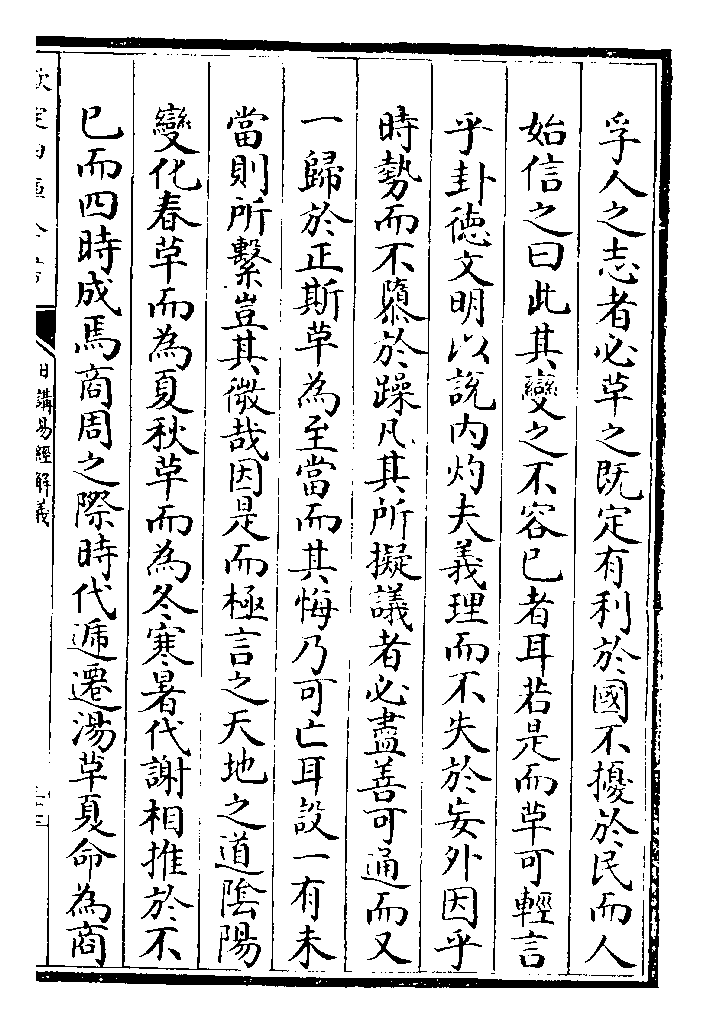 孚人之志者必革之既定有利於國不擾於民而人
始信之曰此其變之不容已者耳若是而革可輕言
乎卦德文明以說內灼夫義理而不失於妄外因乎
時勢而不隳於躁凡其所擬議者必盡善可通而又
一歸於正斯革為至當而其悔乃可亡耳設一有未
當則所繫豈其微哉因是而極言之天地之道陰陽
變化春革而為夏秋革而為冬寒暑代謝相推於不
已而四時成焉商周之際時代遞遷湯革夏命為商
欽定四庫全書
日講易經解義